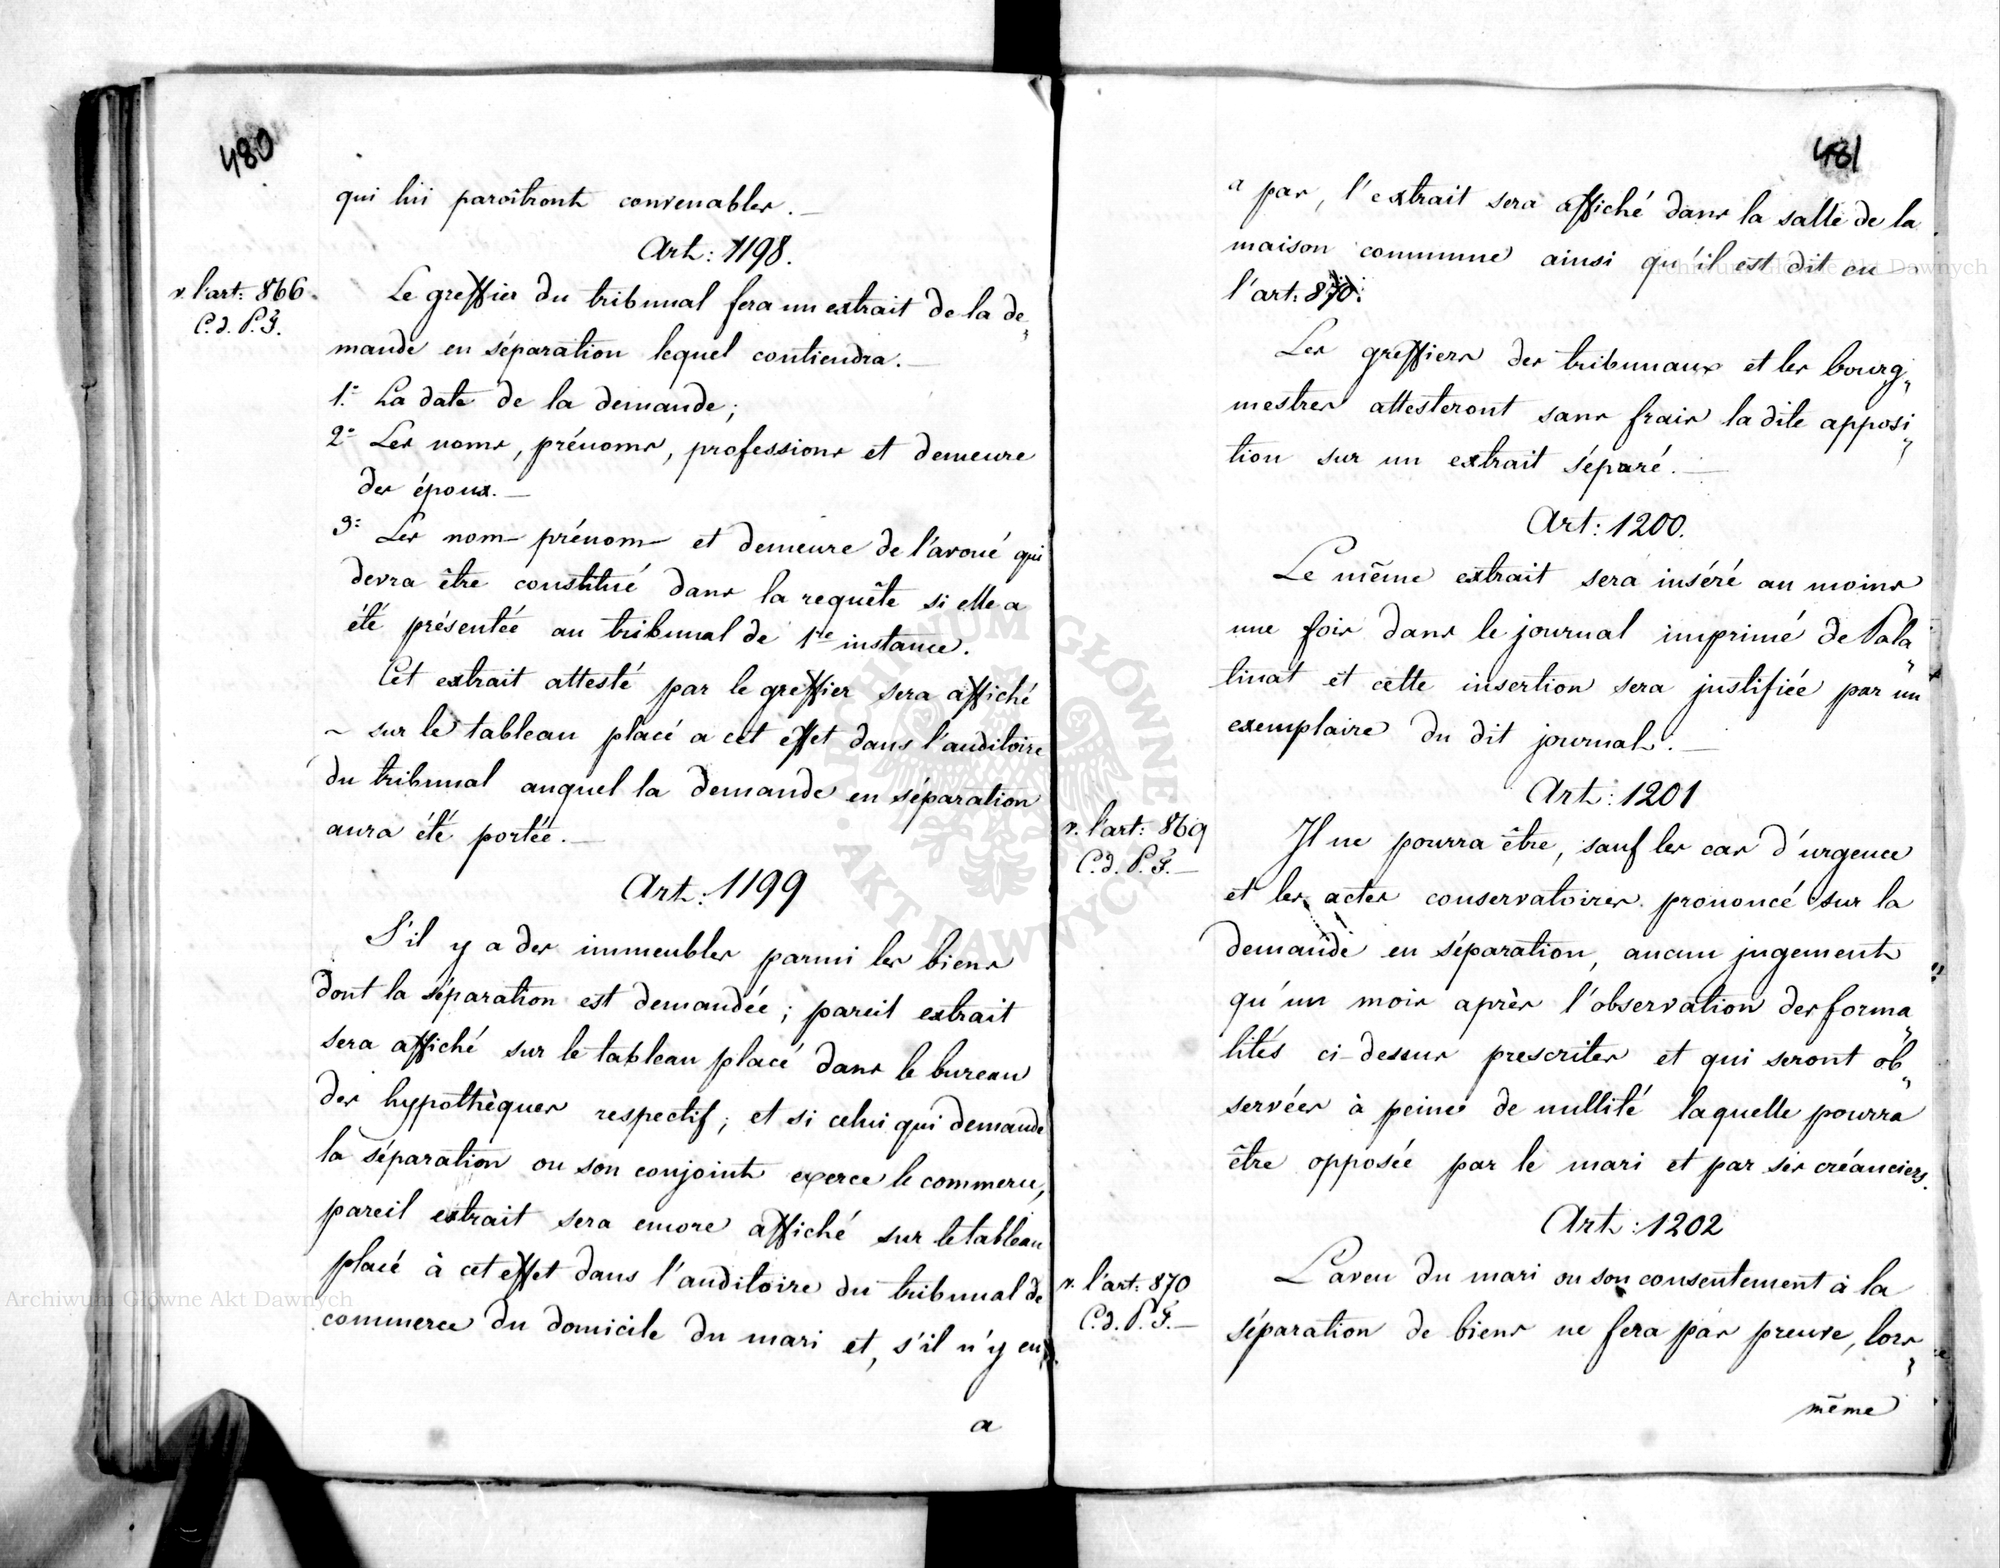 480
qui lui paroîtront convenables. —
Art: 1198.
v. l'art: 866.
C. d. P. F.
Le greffier du tribunal fera un extrait de la de„
mande en séparation lequel contiendra. —
1.° La date de la demande;
2° Les noms, prénoms, professions et demeure
des époux. —
3° Les nom — prénom — et demeure de l'avoué qui
devra être constitué dans la requête si elle a
été présentée au tribunal de 1re instance.
Cet extrait attesté par le greffier sera affiché
~ sur le tableau placé a cet effet dans l'auditoire
du tribunal auquel la demande en séparation
aura été portée. —
Art: 1199
S'il y a des immeubles parmi les biens
dont la séparation est demandée; pareil extrait
sera affiché sur le tableau placé dans le bureau
des hypothèques respectif; et si celui qui demande
la séparation ou son conjoint exerce le commerce,
pareil extrait sera encore affiché sur le tableau
placé à cet effet dans l'auditoire du tribunal de
commerce du domicile du mari et, s'il n'y en
a
481
a pas, l'extrait sera affiché dans la salle de la
maison commune ainsi qu'il est dit en
l'art: 870.
Les greffiers des tribunaux et les bourg„
mestres attesteront sans frais la dite apposi„
tion sur un extrait séparé. —
Art: 1200.
Le même extrait sera inséré au moins
une fois dans le journal imprimé de Pala„
tinat et cette insertion sera justifiée par un
exemplaire du dit journal. —
Art: 1201
v. l'art: 869
C. d. P. F. —
Il ne pourra être, sauf les cas d'urgence
et les actes conservatoires prononcé sur la
demande en séparation, aucun jugement
qu'un mois après l'observation des forma„
lités ci-dessus prescrites et qui seront ob„
servées à peine de nullité laquelle pourra
être opposée par le mari et par ses créanciers.
Art: 1202
v. l'art: 870
C. d. P. F. —
L'aveu du mari ou son consentement à la
séparation de biens ne fera pas preuve, lors„
même
Archiwum Główne Akt Dawnych
Archiwum Główne Akt Dawnych
ARCHIWUM GŁÓWNE AKT DAWNYCH